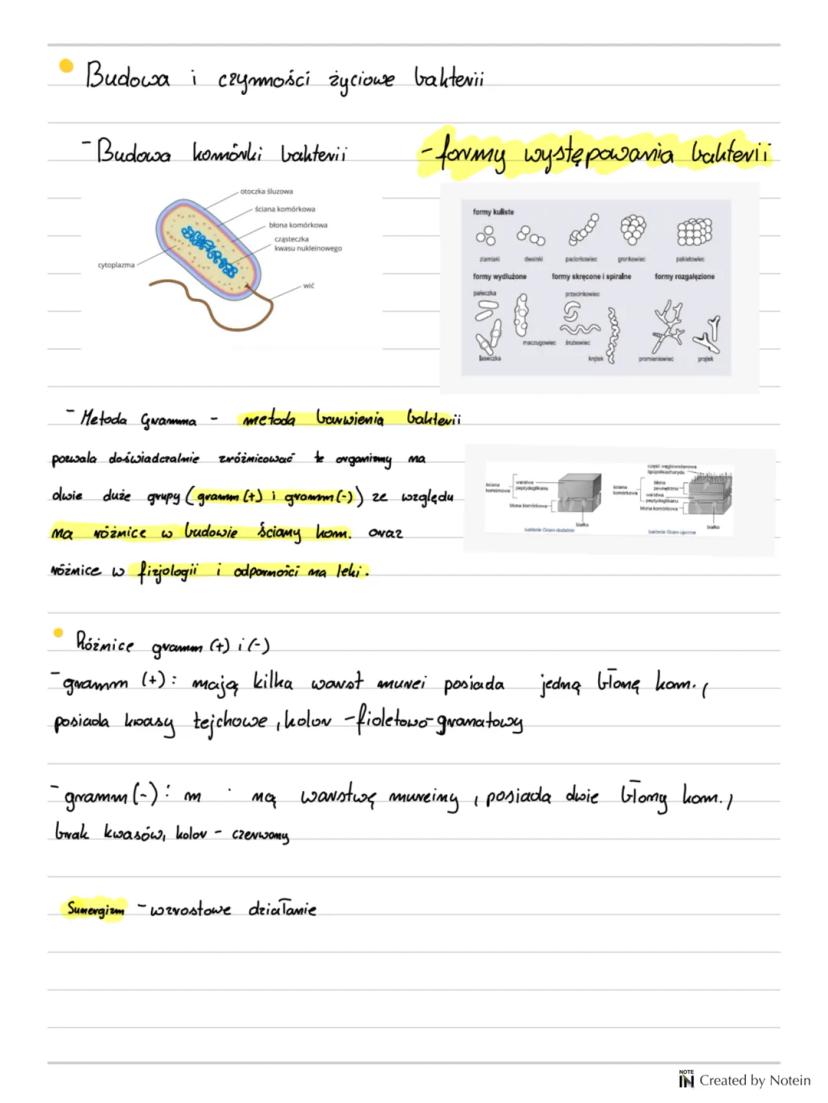 Budowa i czynności życiowe bakterii
- Budowa komórki bakterii
- formy występowania bakterii
otoczka śluzowa
ściana komórkowa
błona komórkowa
cząsteczka
kwasu nukleinowego
cytoplazma
wić
formy kuliste
ziarniaki dwoinki paciorkowiec gronkowiec pakietowiec
formy wydłużone formy skręcone i spiralne formy rozgałęzione
pałeczka przecinkowiec
maczugowiec śrubowiec
laseczka krętek promieniowiec prątek
- Metoda Gramma - metoda barwienia bakterii
pozwala doświadczalnie zróżnicować te organizmy na
dwie duże grupy (gramm (+) i gramm (-)) ze względu
na różnice w budowie ściany kom. oraz
różnice w fizjologii i odporności na leki.
ściana
komórkowa
warstwa
peptydoglikanu
błona komórkowa
białko
bakterie Gram-dodatnie
część węglowodanowa
lipopolisacharydu
ściana
komórkowa
błona
zewnętrzna
warstwa
peptydoglikanu
błona komórkowa
białko
bakterie Gram-ujemne
Różnice gramm (+) i (-)
- gramm (+): mają kilka warst murei posiada jedną błonę kom.,
posiada kwasy tejchowe, kolor - fioletowo-granatowy
- gramm (-): m na warstwę mureiny, posiada dwie błony kom.,
brak kwasów, kolor - czerwony
Sunergizm - wzrostowe działanie
NOTE IN Created by Notein